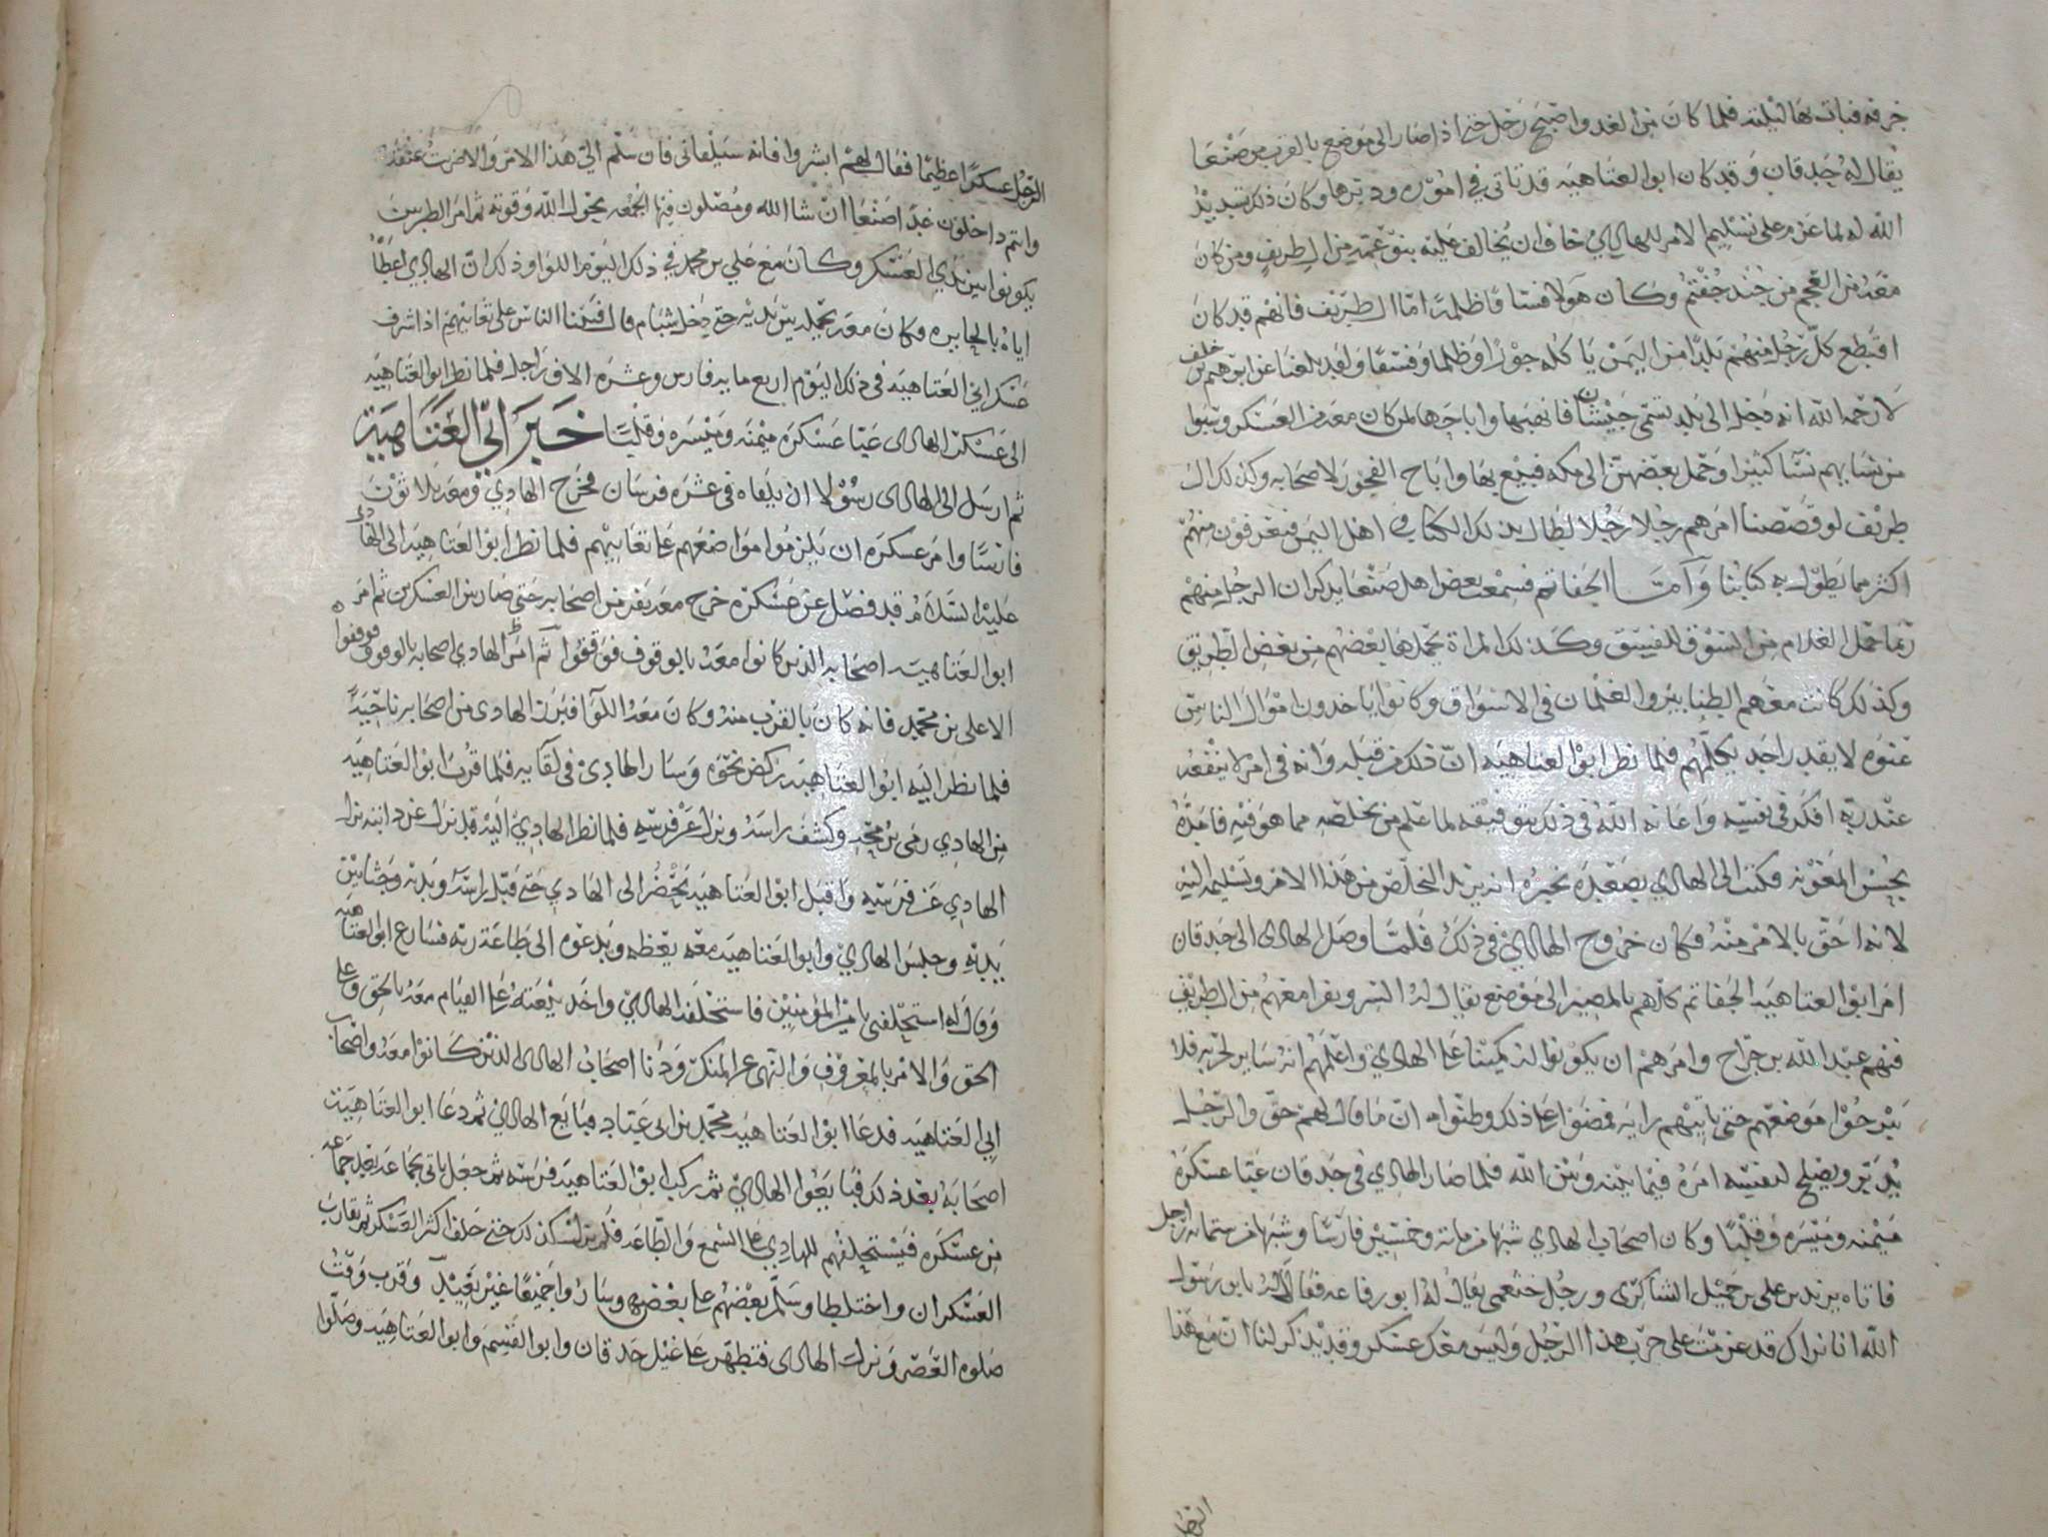 خرفه فبات بها ليلته فلما كان من الغد واصبح رحل حتى اذا صار الى موضع بالقرب من صنعا
يقال له حدقان وقد كان ابو العتاهيه قد تاتى في اموره ودبرها وكان ذلك تسديد
الله له لما عزم على تسليم الامر للهادي خاف ان يخالف عليه بنو عمه من ال طريف ومن كان
معه من العجم من جند جفتم وكان هولا فساقا ظلمة اما ال طريف فانهم قد كان
اقتطع كل رجل منهم بلدا من اليمن ياكله جورا وظلما وفسقا ولقد بلغنا عن ابرهيم بن خلف
لا رحمه الله انه دخل الى بلد تسمى جيشان فانهبها واباحها لمن كان معه من العسكر وسبوا
من نسايهم نسا كثيرا وحمل بعضهن الى مكه فبيع بها واباح الفجور لاصحابه وكذلك ال
طريف لو قصصنا امرهم رجلا رجلا لطال بذلك الكتاب في اهل اليمن فيعرفون منهم
اكثر مما يطول به كتابنا واما الجفاتم فسمعت بعض اهل صنعا يذكر ان الرجل منهم
ربما حمل الغلام من السوق للفسق وكذلك المراة يحملها بعضهم من بعض الطريق
وكذلك كانت معهم الطنابير والغلمان في الاسواق وكانوا ياخذون اموال الناس
عنوه لا يقدر احد يكلمهم فلما نظر ابو العتاهيه ان ذلك من قبله وانه في امر لا ينفعه
عند ربه افكر في نفسه واعانه الله في ذلك بتوفيقه لما علم من تخلصه مما هو فيه فامده
بحسن المعونه فكتب الى الهادي بصعده يخبره انه يريد التخلص من هذا الامر وتسليمه اليه
لانه احق بالامر منه فكان خروج الهادي في ذلك فلما وصل الهادى الى حدقان
امر ابو العتاهيه الجفاتم كلهم بالمصير الى موضع يقال له السر ونفرا معهم من ال طريف
فيهم عبد الله بن جراح وامرهم ان يكونوا له كمينا على الهادي واعلمهم انه ساير لحربه فلا
يبرحوا موضعهم حتى ياتيهم رايه فمضوا على ذلك وظنوا ان ما قال لهم حق والرجل
يدبر ويصلح لنفسه امره فيما بينه وبين الله فلما صار الهادي في حدقان عبا عسكره
ميمنه وميسره وقلبا وكان اصحاب الهادي شبها من مائة وخمسين فارسا وشبها من ستمائة راجل
فاتاه يزيد بن علي بن جميل الشاكرى ورجل خثعمى يقال له ابو رفاعه فقالا له يا بن رسول
الله انا نراك قد عزمت على حرب هذا الرجل وليس معك عسكر وقد يذكر لنا ان مع هذا
الرجل عسكرا عظيما فقال لهم ابشروا فانه سيلقانى فان سلم الي هذا الامر والا ضربت عنقه
وانتم داخلون غدا صنعا ان شا الله ومصلون فيها الجمعه بحول الله وقوته ثم امر الطبريين
يكونوا بين يدي العسكر وكان مع علي بن محمد في ذلك اليوم اللوا وذلك ان الهادي اعطاه
اياه بالحابره فكان معه يحمله بين يديه حتى دخل شبام قال فبينا الناس على تعابيهم اذ اشرف
عسكر ابي العتاهيه في ذلك اليوم اربع مايه فارس وعشره الاف راجل فلما نظر ابو العتاهيه
الى عسكر الهادى عبا عسكره ميمنه وميسره وقلبا خبر ابي العتاهية
ثم ارسل الى الهادى رسولا ان يلقاه في عشره فرسان فخرج الهادي ومعه ثلاثون
فارسا وامر عسكره ان يلزموا مواضعهم على تعابيهم فلما نظر ابو العتاهيه الى الهادي
عليه السلام قد فصل عن عسكره خرج معه نفر من اصحابه حتى صار بين العسكرين ثم امر
ابو العتاهيه اصحابه الذين كانوا معه بالوقوف فوقفوا ثم امر الهادي اصحابه بالوقوف فوقفوا
الا علي بن محمد فانه كان بالقرب منه وكان معه اللوا فبرز الهادى من اصحابه ناحية
فلما نظر اليه ابو العتاهيه ركض نحوه وسار الهادي في لقايه فلما قرب ابو العتاهيه
من الهادي رمى برمحه وكشف راسه ونزل عن فرسه فلما نظر الهادي اليه قد نزل عن دابته نزل
الهادي عن فرسه واقبل ابو العتاهيه يحضر الى الهادي حتى قبل راسه ويديه وجثا بين
يديه وجلس الهادي وابو العتاهيه معه يعظه ويدعوه الى طاعة ربه فسارع ابو العتاهيه
وقال له استحلفني يا امير المؤمنين فاستحلفه الهادي واخذ بيعته على القيام معه بالحق وعلى
الحق والامر بالمعروف والنهي عن المنكر ودنا اصحاب الهادى الذين كانوا معه واصحاب
ابي العتاهيه فدعا ابو العتاهيه محمد بن ابي عباد فبايع الهادي ثم دعا ابو العتاهيه
اصحابه بعد ذلك فبايعوا الهادي ثم ركب ابو العتاهيه فرسه ثم جعل ياتى بجماعه بعد جماعه
من عسكره فيستحلفهم للهادي على السمع والطاعه فلم يزل كذلك حتى حلف اكثر العسكر ثم تقارب
العسكران واختلطا وسلم بعضهم على بعض وساروا جميعا غير بعيد وقرب وقت
صلوه العصر ونزل الهادى فتطهر على غيل حدقان وابو القسم وابو العتاهيه وصلوا